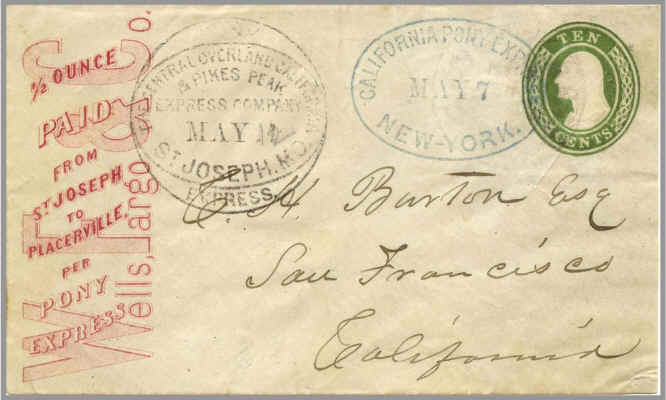 ½ OUNCE
PAID
FROM
ST JOSEPH
TO
PLACERVILLE,
PER
PONY
EXPRESS
Wells, Fargo & Co.
THE CENTRAL OVERLAND CALIFORNIA
& PIKES PEAK
EXPRESS COMPANY
MAY
ST JOSEPH, MO.
EXPRESS
CALIFORNIA PONY EXPRESS
MAY 7
NEW-YORK.
TEN
CENTS
Burton Esq
San Francisco
California